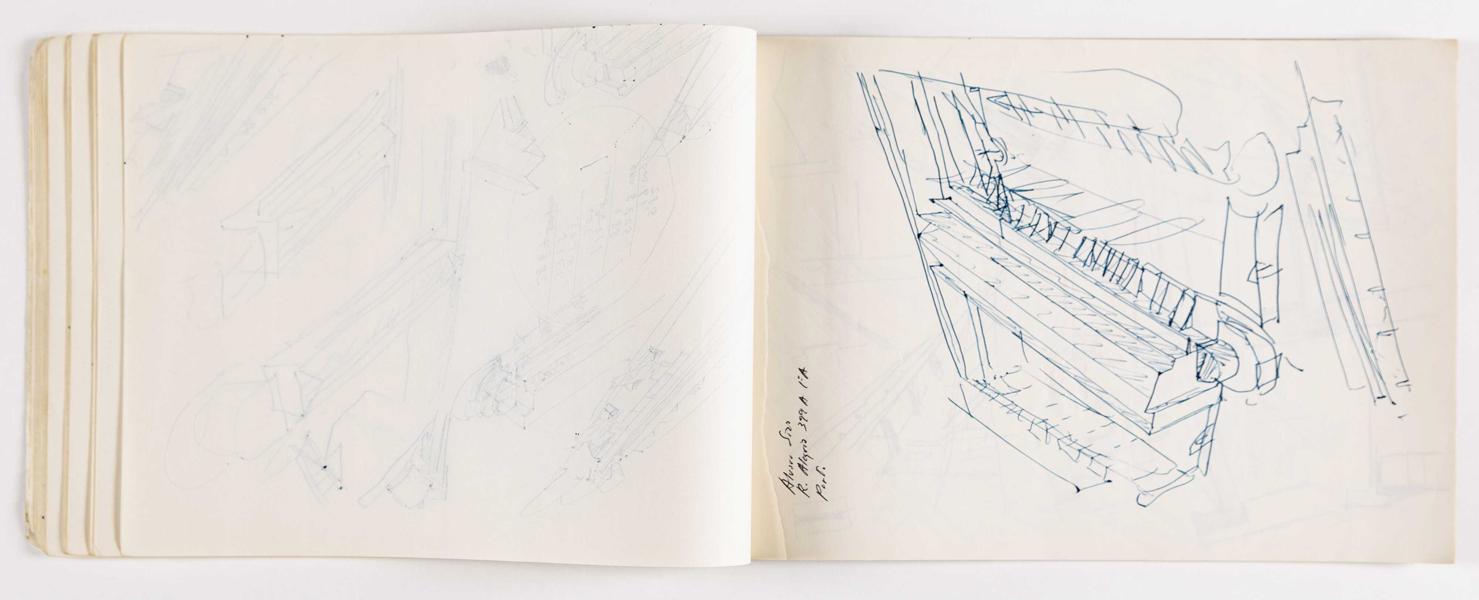 Alvaro Siza
R. Alegria 399 A 1º A
Port.